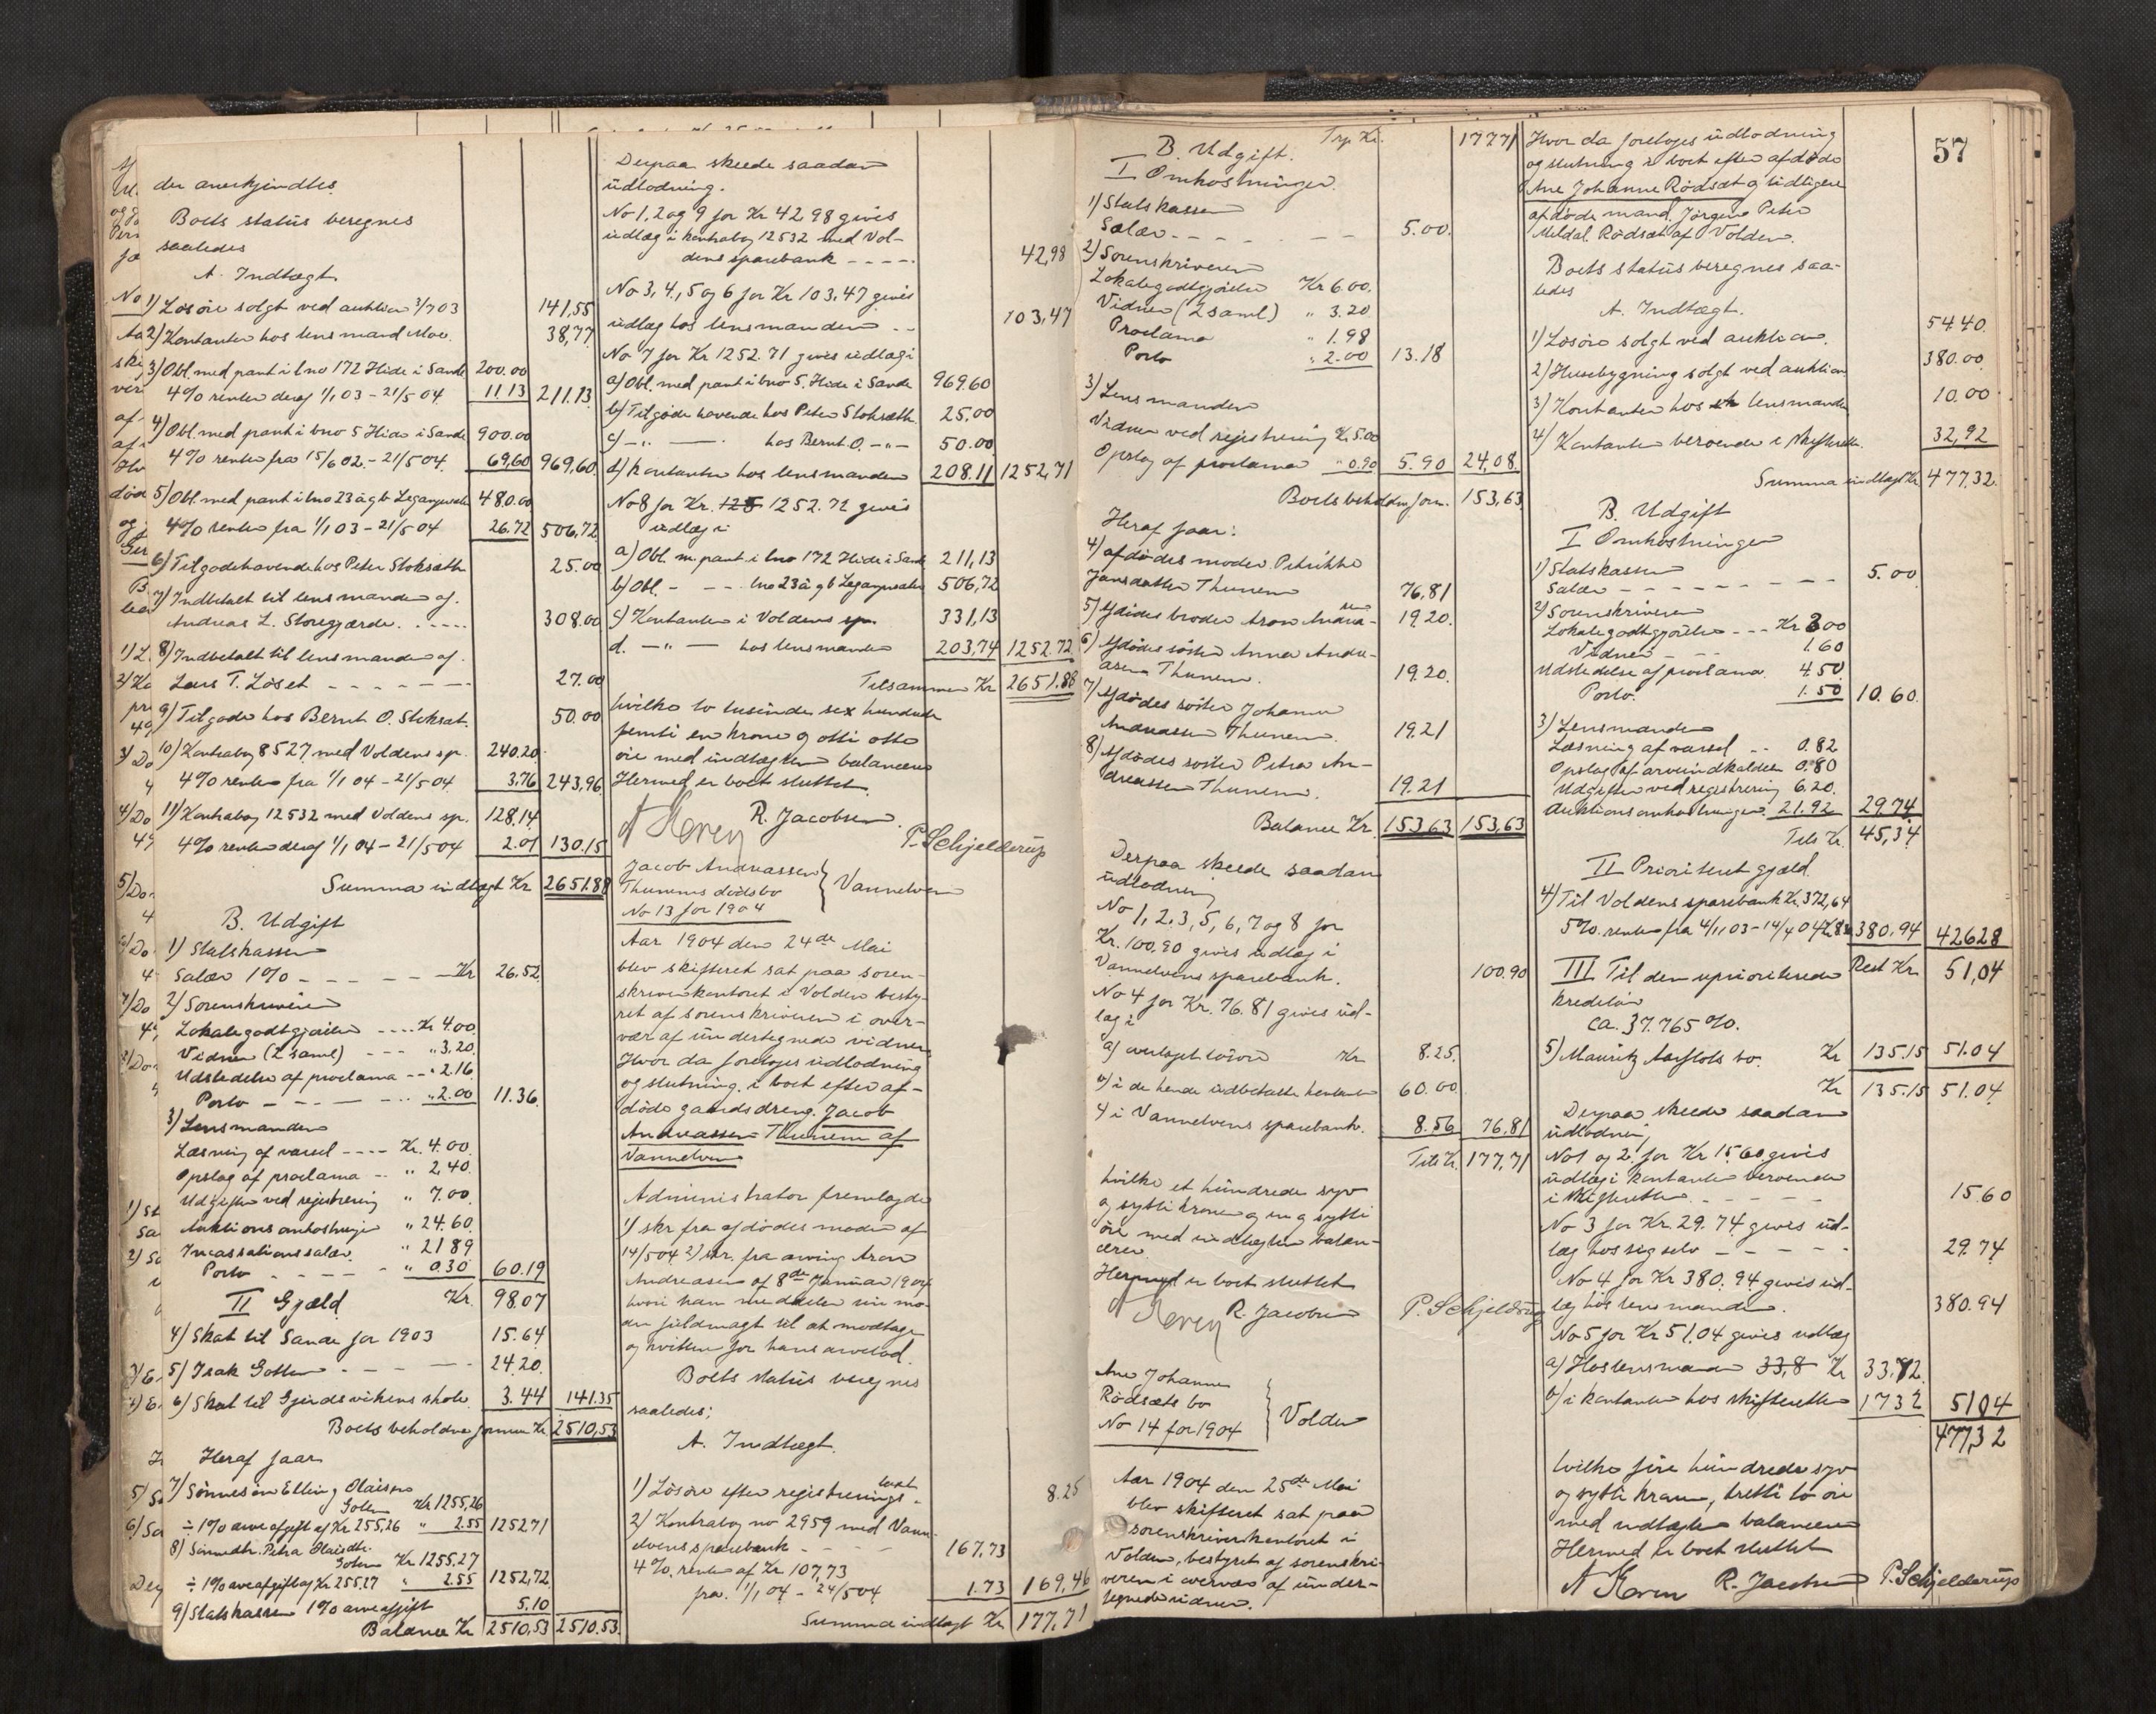 der anerkjendtes.
Boets status beregnes
saaledes
A. Indtægt.
1) Løsøre solgt ved auktion 3/7 03 141,55
2) Kontanter hos lensmand Moe. 38,77
3) Obl. med pant i bno 172 Hide i Sande 200.00
4% renter deraf 1/1 03 - 21/5 04. 11.13 211.13
4) Obl. med pant i bno 5 Hide i Sande 900.00
4% renter fra 15/6 02. - 21/5 04. 69,60 969,60
5) Obl. med pant i bno 23 a gb 480.00
4% renter fra 1/1 03 - 21/5 04 26.72 506,72
6) Tilgodehavende hos Peter Stoksæth 25.00
7) Indbetalt til lensmanden af.
Andreas L. Storegjærde. 308.00
8) Indbetalt til lensmanden af.
Lars T. Løset 27.00
9) Tilgode hos Bernt O. Stoksæt. 50.00
10) Kontrabog 8527 med Voldens sp. 240.20
4% renter fra 1/1 04 - 21/5 04. 3.76 243,96
11) Kontrabog 12532 med Voldens sp. 128.14
4% renter deraf 1/1 04 - 21/5 04 2.01 130.15
Summa indtægt Kr 2651.88
B. Udgift
1) Statskassen
Salær 1% Kr 26.52
2) Sorenskriveren
Lokalegodtgjørelse Kr 4.00.
Vidner (2 saml) " 3.20.
Udstedelse af proclama " 2.16
Porto " 2.00 11.36.
3) Lensmanden
Læsning af varsel Kr. 4.00.
Opslag af proclama " 2.40.
Udgifter ved registrering " 7.00.
Auktionsomkostninger " 24.60
Incassationssalær " 21 89
Porto " 0.30 60.19
II Gjæld Kr. 98.07
4) Skat til Sande for 1903 15.64
5) Isak Gotten 24.20.
6) Skat til Gjerdsvikens skole. 3.44 141.35
Boets beholdne formue Kr 2510,53
Heraf faar
7) Sønnesøn Elling Olaisen
Kr 1255,26
÷ 1% arveafgift af Kr 255,26 " 2.55 1252 71
8) Sønnedtr. Petra Olaisdtr.
Kr 1255.27
÷ 1% arveafgift af Kr 255.27 " 2.55 1252,72
9) Statskassen 1% arveafgift 5.10
Balance Kr 2510,53 2510.53.
Derpaa skeede saadan
udlodning.
No 1, 2 og 9 for Kr 42,98 gives
udlæg i kontrabog 12532 med Vol-
dens sparebank 42,98
No 3, 4, 5 og 6 for Kr 103,47 gives
udlæg hos lensmanden 103,47
No 7 for Kr 1252.71 gives udlæg i
a) Obl. med pant i bno 5. Hide i Sande 969.60
b) Tilgodehavende hos Peter Stoksæth 25.00
c) -"- hos Bernt O. -"- 50.00
d) Kontanter hos lensmanden 208.11 1252,71
No 8 for Kr. 125 1252.72 gives
udlæg i
a) Obl. m. pant i bno 172 Hide i Sande 211,13
b) Obl. - - - bno 23 a gb 506,72
c) Kontanter i Voldens sp. 331,13
d. -"- hos lensmanden 203,74 1252.72
Tilsammen Kr 2651.88
hvilke to tusinde sex hundrede
femti en krone og otti otte
øre med indtægten balancerer
Hermed er boet sluttet.
R. Jacobsen. P. Schjelderup
Jacob Andreassen
Thunems dødsbo } Vannelven
No 13 for 1904
Aar 1904 den 24de Mai
blev skifteret sat paa soren-
skriverkontoret i Volden besty-
ret af sorenskriveren i over-
vær af undertegnede vidner.
Hvor da foretoges udlodning
og slutning. i boet efter af-
døde gaardsdreng. Jacob
Andreassen Thunem af
Vannelven
Administrator fremlagde
1) skr fra afdødes moder af
14/5 04. 2) skr. fra arving Aron
Andreasen af 8de Januar 1904
hvori han meddeler sin mo-
der fuldmagt til at modtage
og kvittere for hans arvelod.
Boets status beregnes
saaledes;
A. Indtægt.
1) Løsøre efter registrerings- takst 8.25
2) Kontrabog no 2959 med Vann-
elvens sparebank 167,73
4% renter af Kr 107,73
fra. 1/1 04 - 24/5 04 1.73 169,46
Summa indtægt Kr 177,71
57
Trp. Kr. 177 71
B. Udgift.
I Omkostninger.
1) Statskassen
Salær 5.00.
2) Sorenskriveren
Lokalegodtgjørelse Kr 6.00.
Vidner (2 saml) " 3.20
Proclama " 1.98
Porto " 2.00 13.18
3) Lensmanden
Vidner ved registrering Kr. 5.00
Opslag af proclama " 0.90 5.90 24,08.
Boets beholdne form. 153,63
Heraf faar:
4) afdødes moder Petrikke
Jansdatter Thunem 76,81
5) Afdødes broder Aron Andrea- sen 19.20.
6) Afdødes søster Anna Andre-
asen Thunem. 19.20.
7) Afdødes søster Johanne
Andreassen Thunem. 19.21
8) Afdødes søster Petra An-
dreassen Thunem. 19.21
Balance Kr. 153 63 153,63
Derpaa skeede saadan
udlodning
No 1, 2. 3, 5, 6, 7 og 8 for
Kr. 100.90 gives udlæg i
Vannelvens sparebank. 100.90
No 4 for Kr. 76.81 gives ud-
læg i
a) overtaget løsøre Kr 8.25.
b) i de hende udbetalte kontanter 60.00
c) i Vannelvens sparebank. 8.56 76.81
Tils Kr. 177,71
hvilke et hundrede syv
og sytti kroner og en og sytti
øre med indtægten balan-
cerer.
Hermed er boet sluttet
R. Jacobsen P. Schjelderup
Ane Johanne
Rødsæts bo } Volden
No 14 for 1904
Aar 1904 den 25de Mai
blev skifteret sat paa
sorenskriverkontoret i
Volden, bestyret af sorenskri-
veren i overvær af under-
tegnede vidner.
Hvor da foretoges udlodning
og slutning i boet efter afdøde
Ane Johanne Rødsæt og tidligere
afdøde mand. Jørgen Peter
Meldal Rødsæt af Volden.
Boets status beregnes saa-
ledes
A. Indtægt.
1) Løsøre solgt ved auktion. 54 40.
2) Husebygning solgt ved auktion 380.00
3) Kontanter hos lensmanden 10.00
4) Kontanter beroende i skifteretten 32,92
Summa indtægt Kr 477,32.
B. Udgift
I Omkostninger
1) Statskassen
Salær 5.00
2) Sorenskriveren
Lokalegodtgjørelse Kr 3.00
Vidner 1.60
Udstedelse af proclama 4.50
Porto. 1.50 10.60.
3) Lensmanden
Læsning af varsel 0.82
Opslag af arveindkaldelse 0.80
Udgifter ved registrering 6.20.
Auktionsomkostninger 21.92 29.74
Tils Kr. 45,34
II Prioriteret gjæld.
4) Til Voldens sparebank Kr. 372,64
5% renter fra 4/11 03 - 14/4 04 380.94 426 28
Rest Kr. 51,04
III Til den uprioriterede
kreditor
ca. 37.765 %.
5) Mauritz Aarflots bo. Kr 135.15 51.04
Kr 135.15 51.04
Derpaa skeede saadan
udlodning
No 1 og 2. for Kr 15.60 gives
udlæg i kontanter beroende
i skifteretten 15.60
No 3 for Kr. 29.74 gives ud-
læg hos sig selv 29.74
No 4 for Kr 380.94 gives ud-
læg hos lensmanden. 380.94
No 5 for Kr 51.04 gives udlæg
a) Hos lensmanden 33,8 Kr 33.72.
b) i kontanter hos skifteretten 17 32 51 04
477,32
hvilke fire hundrede syv
og sytti kroner, tretti to øre
med indtægten balancerer
Hermed er boet sluttet
R. Jacobsen P. Schjelderup